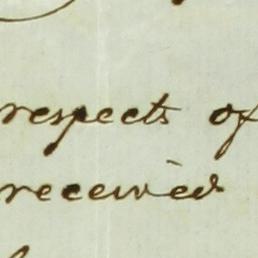 respects of
received